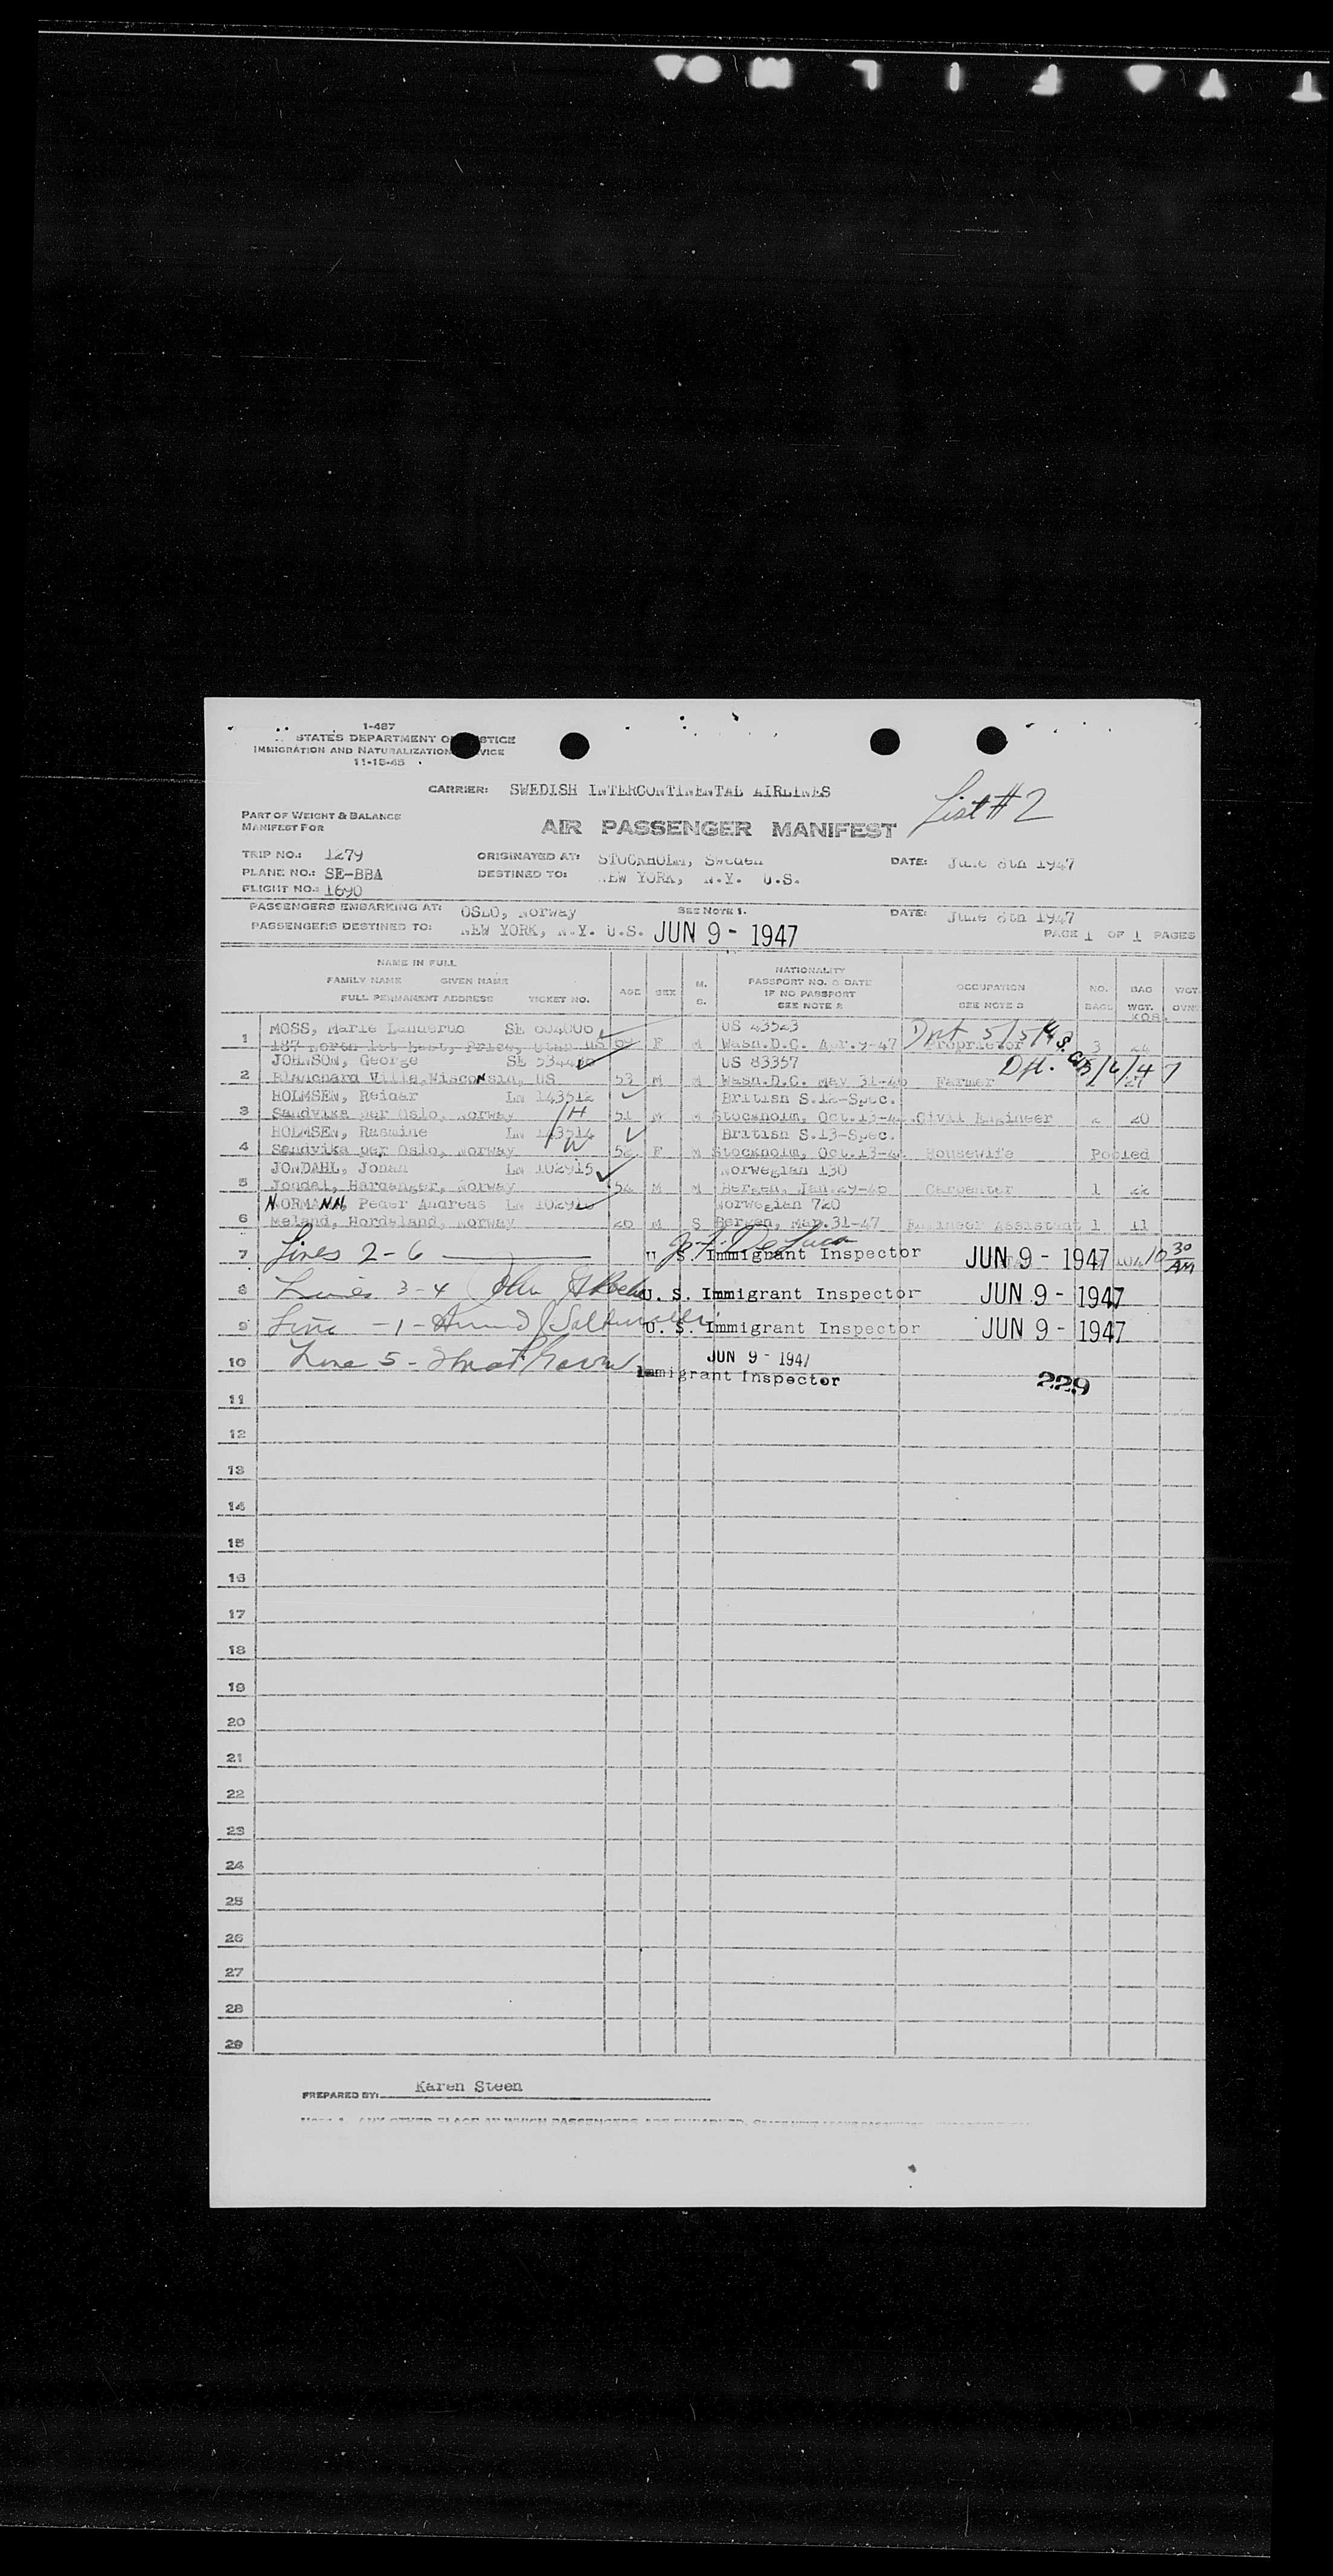 1-487
STATES DEPARTMENT OF JUSTICE
IMMIGRATION AND NATURALIZATION SERVICE
11-15-45
CARRIER: SWEDISH INTERCONTINENTAL AIRLINES
List #2
PART OF WEIGHT & BALANCE
MANIFEST FOR
AIR PASSENGER MANIFEST
TRIP NO.: 1279 ORIGINATED AT: STOCKHOLM, Sweden DATE: June 8th 1947
PLANE NO.: SE-BBA DESTINED TO: NEW YORK, N.Y. U.S.
FLIGHT NO.: 1690
PASSENGERS EMBARKING AT: OSLO, Norway SEE NOTE 1. DATE: June 8th 1947
PASSENGERS DESTINED TO: NEW YORK, N.Y. U.S. JUN 9 - 1947 PAGE 1 OF 1 PAGES
NAME IN FULL
FAMILY NAME GIVEN NAME
FULL PERMANENT ADDRESS TICKET NO.
AGE SEX M. S.
NATIONALITY
PASSPORT NO. & DATE
IF NO PASSPORT
SEE NOTE 2
OCCUPATION
SEE NOTE 3
NO. BAGS
BAG WGT. KGS.
WGT.
MOSS, Marie SE US 43523
1 187 North 1st East, Price, Utah US F M Wash.D.C. Apr.9-47 Proprietor 3
JOHNSON, George SE US 83357
2 Blanchard Ville, Wisconsin, US 53 M M Wash.D.C. May 31-46 Farmer
HOLMSEN, Reidar LN 143512 British S.12-Spec.
3 Sandvika per Oslo, Norway /H 51 M M Stockholm, Oct.13- Civil Engineer 2 20
HOLMSEN, Rasmine LN 143514 British S.13-Spec.
4 Sandvika per Oslo, Norway /W F M Stockholm, Oct.13- Housewife Pooled
JONDAHL, Johan LN 102915 Norwegian 130
5 Jondal, Hardanger, Norway M M Bergen, Jan.29-46 Carpenter 1 22
NORMANN, Peder Andreas LN Norwegian 720
6 Meland, Hordaland, Norway M S Bergen, Mar.31-47 Engineer Assistant 1 11
7 Lines 2-6 U. S. Immigrant Inspector JUN 9 - 1947 10 30 AM
8 Lines 3-4 John U. S. Immigrant Inspector JUN 9 - 1947
9 Line -1- U. S. Immigrant Inspector JUN 9 - 1947
10 Line 5 - JUN 9 - 1947
Immigrant Inspector
229
11
12
13
14
15
16
17
18
19
20
21
22
23
24
25
26
27
28
29
PREPARED BY: Karen Steen